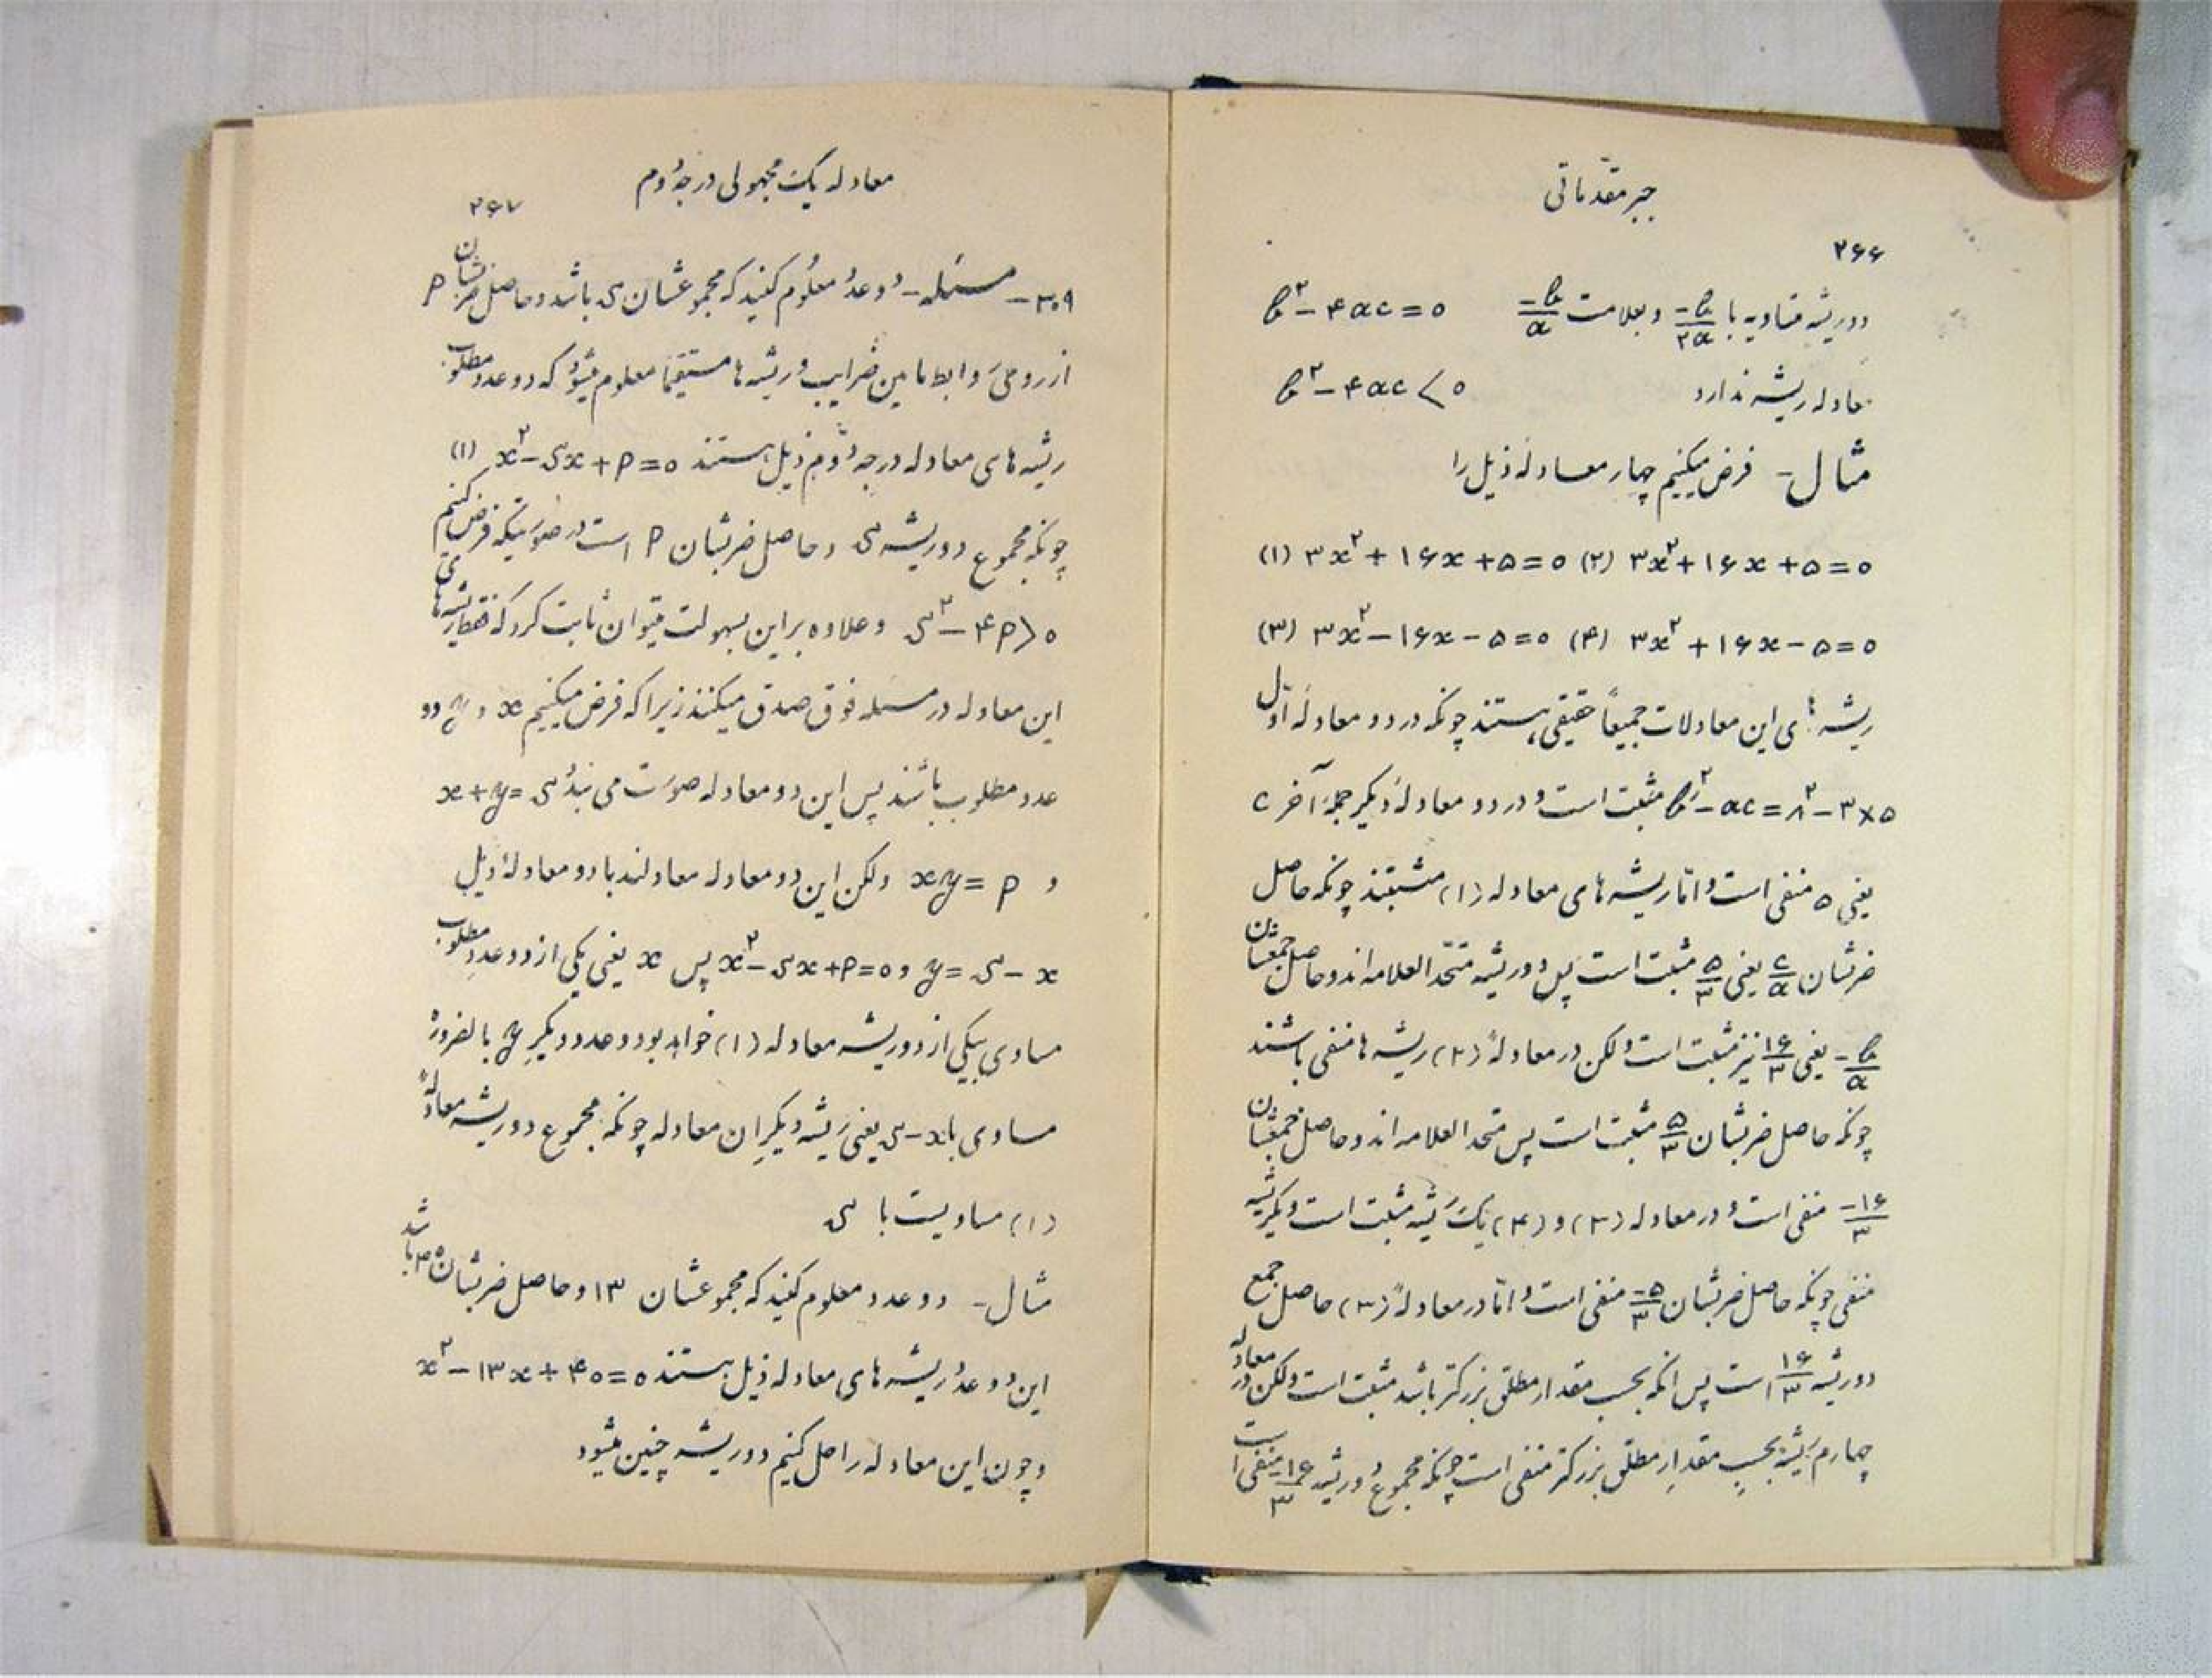 جبر مقدماتی
۲۶۶
دو ریشه متساویه با -b/۲a و بعلامت -b/a b²-۴ac=۰
معادله ریشه ندارد b²-۴ac<۰
مثال - فرض میکنیم چهار معادله ذیل را
(۱) ۳x²+۱۶x+۵=۰ (۲) ۳x²+۱۶x+۵=۰
(۳) ۳x²-۱۶x-۵=۰ (۴) ۳x²+۱۶x-۵=۰
ریشه های این معادلات جمیعاً حقیقی هستند چونکه در دو معادله اول
b'²-ac=۸²-۳×۵ مثبت است و در دو معادله دیگر جمله آخر c
یعنی ۵ منفی است و اما ریشه های معادله (۱) مثبتند چونکه حاصل
ضربشان c/a یعنی ۵/۳ مثبت است پس دو ریشه متحد العلامه اند و حاصل جمعشان
-b/a یعنی ۱۶/۳ نیز مثبت است ولکن در معادله (۲) ریشه ها منفی باشند
چونکه حاصل ضربشان ۵/۳ مثبت است پس متحد العلامه اند و حاصل جمعشان
-۱۶/۳ منفی است و در معادله (۳) و (۴) یک ریشه مثبت است و یک ریشه
منفی چونکه حاصل ضربشان -۵/۳ منفی است و اما در معادله (۳) حاصل جمع
دو ریشه ۱۶/۳ است پس آنکه بحسب مقدار مطلق بزرگتر باشد مثبت است ولکن در معادله
چهارم ریشه بحسب مقدار مطلق بزرگتر منفی است چونکه مجموع دو ریشه -۱۶/۳ منفی است
معادله یک مجهولی درجه دوم
۲۶۷
۳۰۹- مسئله - دو عدد معلوم کنید که مجموعشان s باشد و حاصل ضربشان p
از روی روابط مابین ضرایب و ریشه ها مستقیماً معلوم میشود که دو عدد مطلوب
ریشه های معادله درجه دوم ذیل هستند x²-sx+p=۰ (۱)
چونکه مجموع دو ریشه s و حاصل ضربشان p است در صورتیکه فرض کنیم
s²-۴p>۰ و علاوه بر این بسهولت میتوان ثابت کرد که فقط ریشه های
این معادله در مسئله فوق صدق میکنند زیرا که فرض میکنیم x و y دو
عدد مطلوب باشند پس این دو معادله صورت می بندد x+y=s
و xy=p ولکن این دو معادله معادلند با دو معادله ذیل
y=s-x و x²-sx+p=۰ پس x یعنی یکی از دو عدد مطلوب
مساوی بیکی از دو ریشه معادله (۱) خواهد بود و عدد دیگر y بالضروره
مساوی با s-x یعنی ریشه دیگر ان معادله چونکه مجموع دو ریشه معادله
(۱) مساویست با s
مثال - دو عدد معلوم کنید که مجموعشان ۱۳ و حاصل ضربشان ۴۰ باشد
این دو عدد ریشه های معادله ذیل هستند x²-۱۳x+۴۰=۰
و چون این معادله را حل کنیم دو ریشه چنین میشود